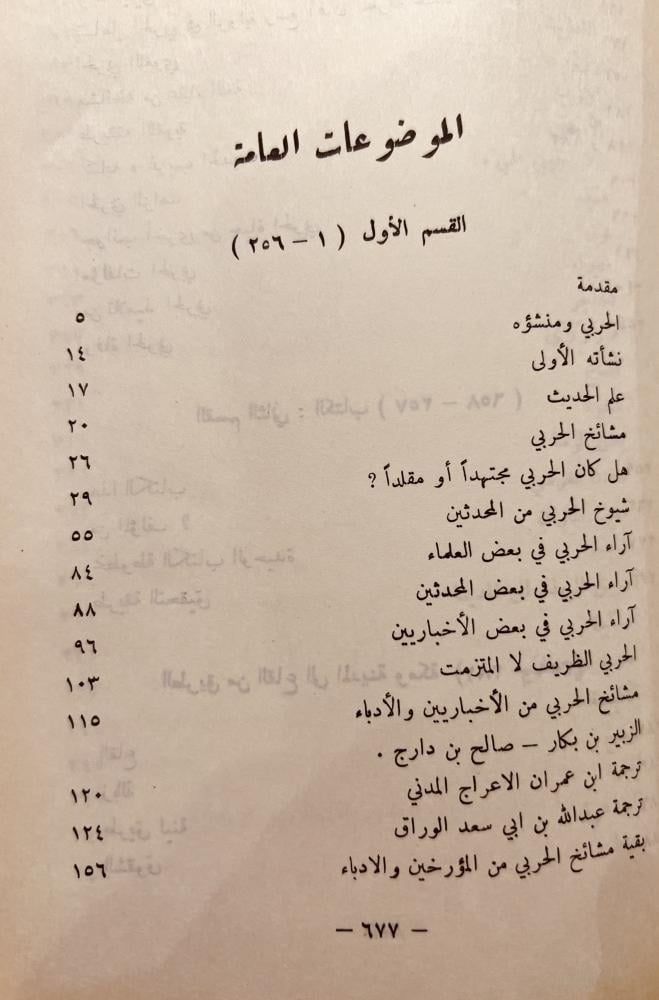 الموضوعات العامة
القسم الأول ( ١ – ٢٥٦ )
مقدمة ٥
الحربي ومنشؤه ١٤
نشأته الأولى ١٧
علم الحديث ٢٠
مشائخ الحربي ٢٦
هل كان الحربي مجتهداً أو مقلداً ? ٢٩
شيوخ الحربي من المحدثين ٥٥
آراء الحربي في بعض العلماء ٨٤
آراء الحربي في بعض المحدثين ٨٨
آراء الحربي في بعض الأخباريين ٩٦
الحربي الظريف لا المتزمت ١٠٣
مشائخ الحربي من الأخباريين والأدباء ١١٥
الزبير بن بكار – صالح بن دارج .
ترجمة ابن عمران الاعراج المدني ١٢٠
ترجمة عبدالله بن ابي سعد الوراق ١٢٤
بقية مشائخ الحربي من المؤرخين والادباء ١٥٦
– ٦٧٧ –